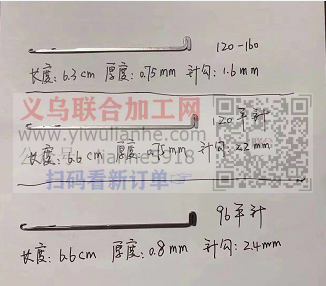 120-160
长度：6.3cm 厚度：0.75mm 针勾：1.6mm
义乌联合加工网
www.yiwulianhe.com
120平针
长度：6.6cm 厚度：0.75mm 针勾：2.2mm
扫码看新订单
96平针
长度：6.6cm 厚度：0.8mm 针勾：2.4mm